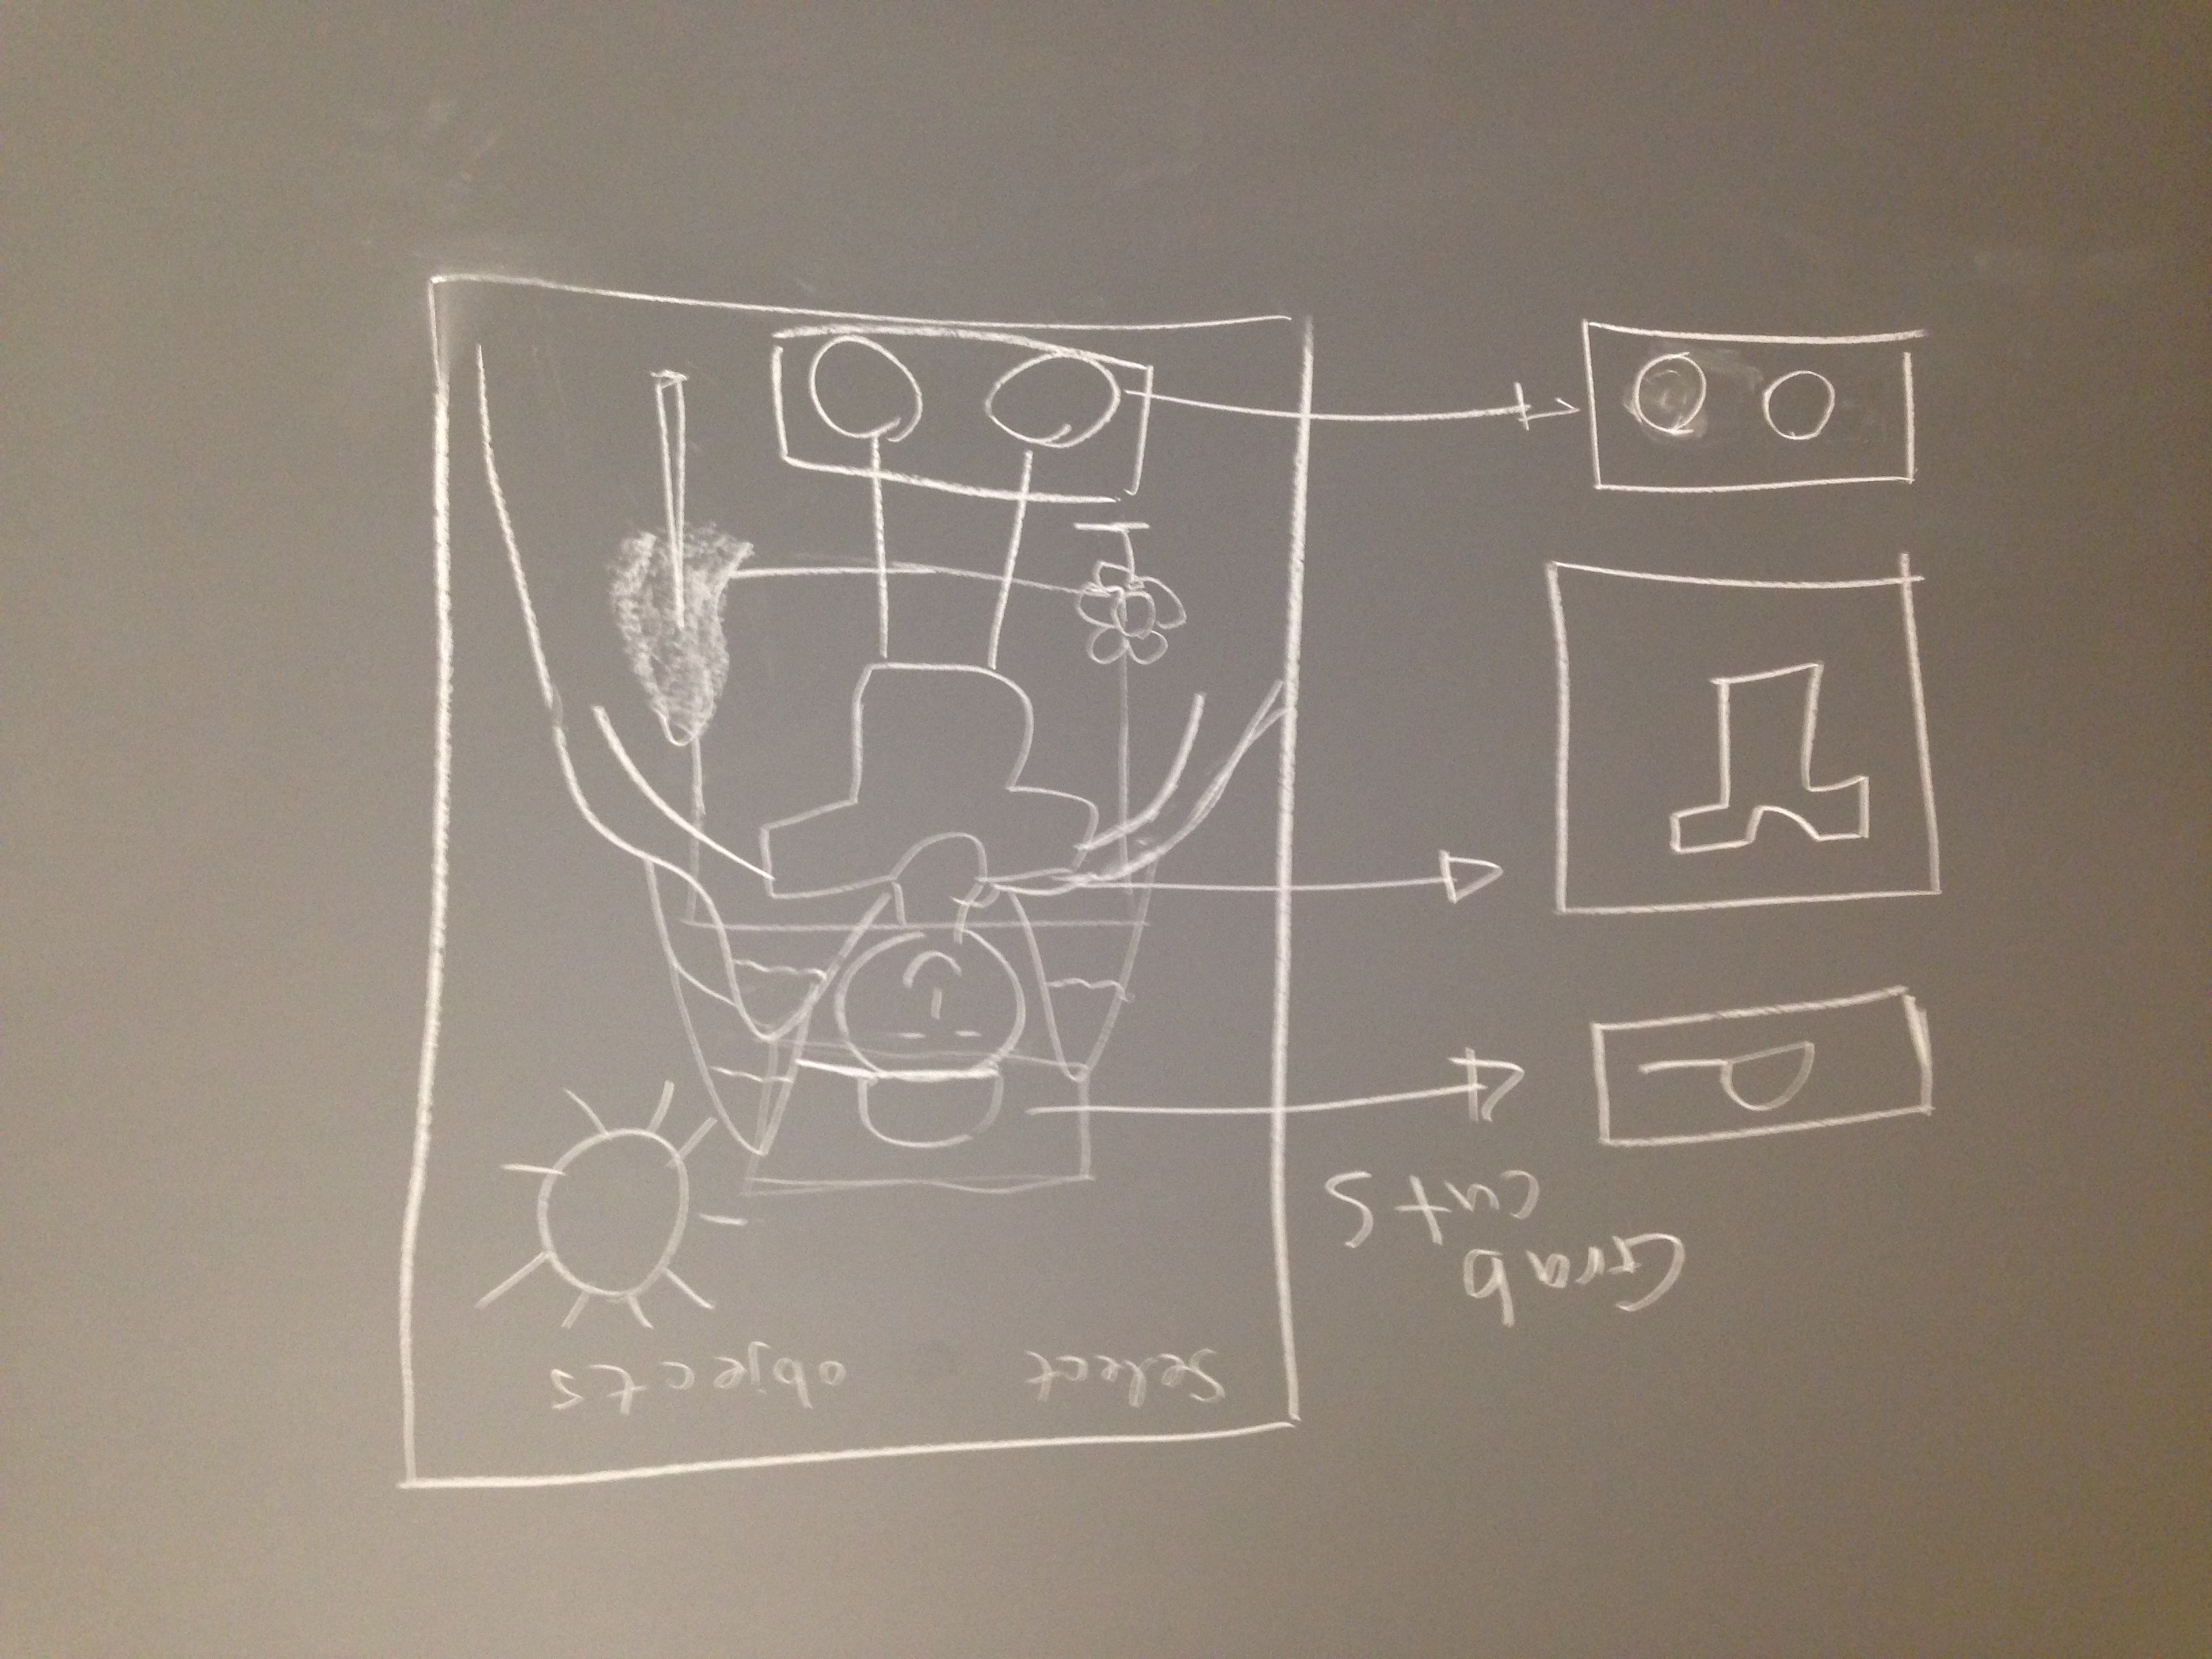 Select objects
Grab
cuts